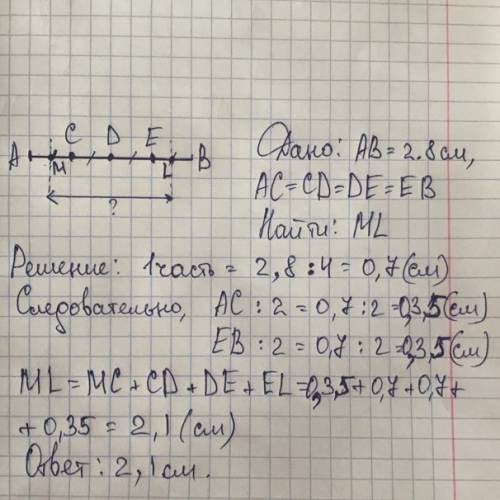 A M C D E L B
?
Дано: AB = 2.8 см,
AC = CD = DE = EB
Найти: ML
Решение: 1 часть = 2,8 : 4 = 0,7 (см)
Следовательно, AC : 2 = 0,7 : 2 = 0,3,5 (см)
EB : 2 = 0,7 : 2 = 0,3,5 (см)
ML = MC + CD + DE + EL = 0,3,5 + 0,7 + 0,7 +
+ 0,35 = 2,1 (см)
Ответ: 2,1 см.